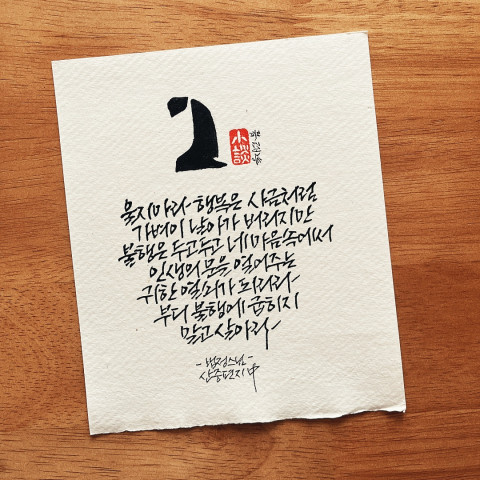 小談
울지마라 행복은 사금처럼
가벼이 날아가 버리지만
불행은 두고두고 네 마음속에서
인생의 문을 열어주는
귀한 열쇠가 되리라
부디 불행에 굽히지
말고 살아라
-법정스님-
산중편지中